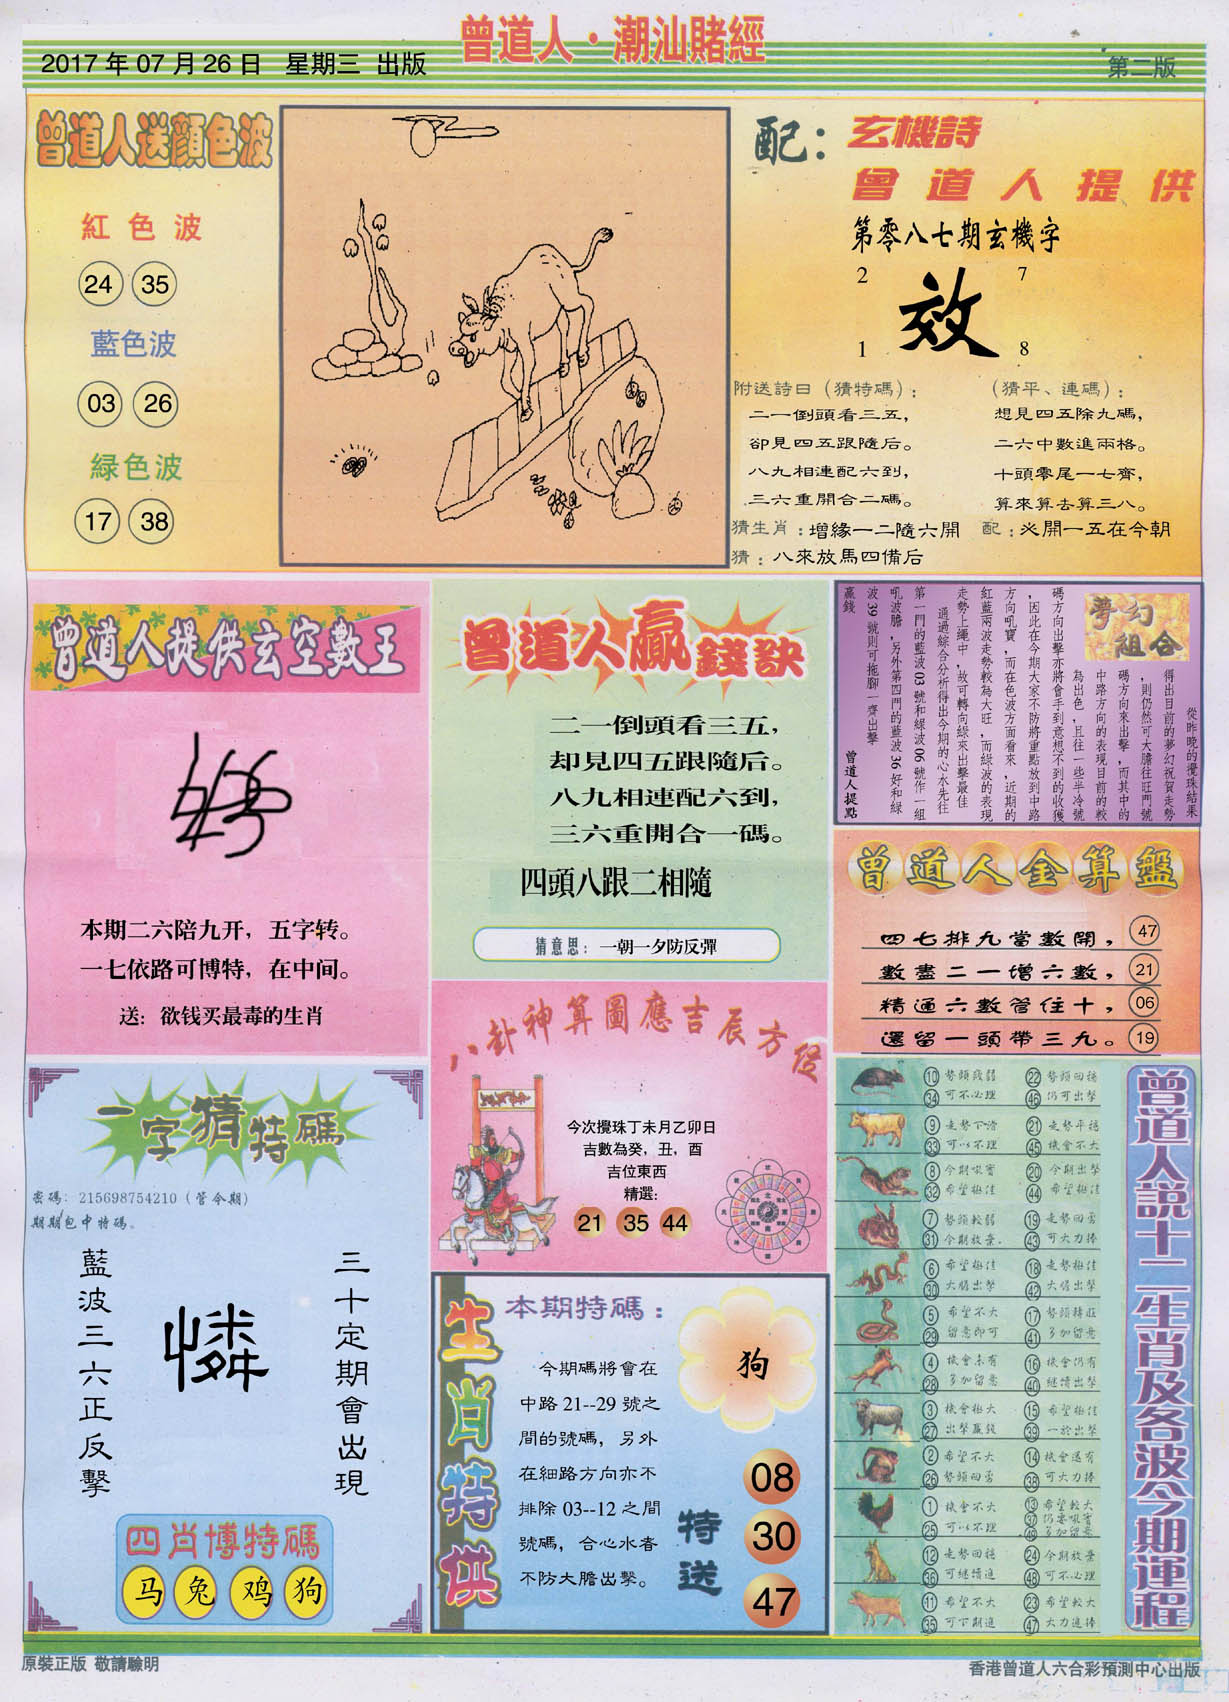 2017 年 07 月 26 日 星期三 出版
曾道人·潮汕賭經
第二版
曾道人送顏色波
紅色波
24 35
藍色波
03 26
緑色波
17 38
配：玄機詩
曾道人提供
第零八七期玄機字
2 7
效
1 8
附送詩曰（猜特碼）：
二一倒頭看三五，
卻見四五跟隨后。
八九相連配六到，
三六重開合二碼。
（猜平、連碼）：
想見四五除九碼，
二六中數進兩格。
十頭零尾一七齊，
算來算去算三八。
猜生肖：增緣一二隨六開 配：必開一五在今朝
猜：八來放馬四備后
曾道人提供玄空數王
本期二六陪九开，五字转。
一七依路可博特，在中间。
送：欲钱买最毒的生肖
曾道人贏錢訣
二一倒頭看三五，
却見四五跟隨后。
八九相連配六到，
三六重開合一碼。
四頭八跟二相隨
猜意思：一朝一夕防反彈
夢幻
組合
從昨晚的攪珠結果
得出目前的夢幻祝賀走勢
，則仍然可大膽往旺門號
碼方向來出擊，而其中的
中路方向的表現目前的較
為出色，且往一些半冷號
碼方向出擊亦將會手到意想不到的收獲
，因此在今期大家不防將重點放到中路
方向吼寶，而在色波方面看來，近期的
紅藍兩波走勢較為大旺，而綠波的表現
走勢上繩中，故可轉向綠來出擊最佳
通過綜合分析得出今期的心水先往
第一門的藍波 03 號和綠波 06 號作一組
吼波膽，另外第四門的藍波 36 好和綠
波 39 號則可拖腳一齊出擊
贏錢
曾道人提點
曾道人金算盤
四七排九當數開， 47
數盡二一增六數， 21
精通六數管住十， 06
還留一頭帶三九。 19
八卦神算圖應吉辰方位
今次攪珠丁未月乙卯日
吉數為癸，丑，酉
吉位東西
精選：
21 35 44
一字猜特碼
密碼：215698754210（管今期）
期期包中特碼。
三十定期會出現
憐
藍波三六正反擊
四肖博特碼
马 兔 鸡 狗
生肖特供
本期特碼：
今期碼將會在
中路 21--29 號之
間的號碼，另外
在細路方向亦不
排除 03--12 之間
號碼，合心水者
不防大膽出擊。
狗
特送
08
30
47
曾道人說十二生肖及各波今期運程
10 勢頭殘弱 22 勢頭回穩
34 可不必理 46 仍可出擊
9 走勢下滑 21 走勢平穩
33 可以不理 45 機會不大
8 今期吼寶 20 今期出擊
32 希望極佳 44 希望極佳
7 勢頭較弱 19 走勢回勇
31 今期放棄． 43 可大力捧
6 希望極佳 18 走勢極佳
30 大膽出擊 42 大膽出擊
5 希望不大 17 勢頭轉旺
29 留意即可 41 多加留意
4 機會未有 16 機會仍有
28 多加留意 40 繼續出擊
3 機會極大 15 希望極佳
27 出擊贏錢 39 一於出擊
2 希望不大 14 機會還有
26 勢頭回勇 38 可大力捧
1 機會不大 13 希望較大
25 可以不理 37 仍要吼實
49 多加留意
12 走勢回穩 24 今期放棄
36 可繼續進 48 可不必理
11 希望不大 23 希望較大
35 可下期進 47 大力進捧
原裝正版 敬請驗明
香港曾道人六合彩預測中心出版